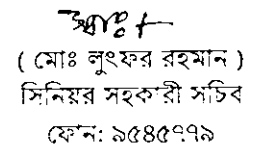 ( মোঃ লুৎফর রহমান )
সিনিয়র সহকারী সচিব
ফোন: ৯৫৪৫৭৭৯